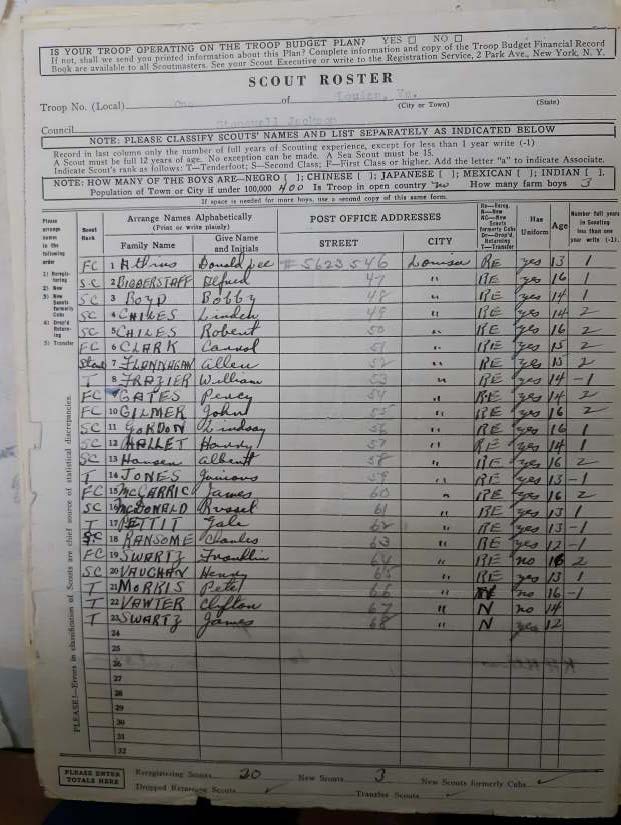 IS YOUR TROOP OPERATING ON THE TROOP BUDGET PLAN? YES ☐ NO ☐
If not, shall we send you printed information about this Plan? Complete information and copy of the Troop Budget Financial Record
Book are available to all Scoutmasters. See your Scout Executive or write to the Registration Service, 2 Park Ave., New York, N. Y.
SCOUT ROSTER
Troop No. (Local) One of Louisa, Va.
(City or Town) (State)
Council Stonewall Jackson
NOTE: PLEASE CLASSIFY SCOUTS' NAMES AND LIST SEPARATELY AS INDICATED BELOW
Record in last column only the number of full years of Scouting experience, except for less than 1 year write (-1)
A Scout must be full 12 years of age. No exception can be made. A Sea Scout must be 15.
Indicate Scout's rank as follows: T—Tenderfoot; S—Second Class; F—First Class or higher. Add the letter "a" to indicate Associate.
NOTE: HOW MANY OF THE BOYS ARE—NEGRO [ ]; CHINESE [ ]; JAPANESE [ ]; MEXICAN [ ]; INDIAN [ ].
Population of Town or City if under 100,000 400 Is Troop in open country no How many farm boys 3
If space is needed for more boys, use a second copy of this form.
Please arrange names in the following order
1) Reregistering
2) New
3) New Scouts formerly Cubs
4) Drop'd Returning
5) Transfer
Scout Rank
Arrange Names Alphabetically
(Print or write plainly)
Family Name Give Name and Initials
POST OFFICE ADDRESSES
STREET CITY
Re—Rereg.
N—New
NC—New Scouts formerly Cubs
Dr—Drop'd Returning
T—Transfer
Has Uniform Age Number full years in Scouting less than one year write (-1).
FC 1 Donald Lee #5623546 Louisa RE yes 13 1
SC 2 BIGGERSTAFF 47 " RE yes 16 1
SC 3 BOYD Bobby 48 " RE yes 14 1
SC 4 CHILES Linden 49 " RE yes 14 2
SC 5 CHILES Robert 50 " RE yes 16 2
FC 6 CLARK Carrol 51 " RE yes 15 2
Star 7 FLANNAGAN Allen 52 " RE yes 15 2
T 8 FRAZIER William 53 " RE yes 14 -1
FC 9 GATES Percy 54 " RE yes 14 2
FC 10 GILMER John 55 " RE yes 16 2
SC 11 GORDON Lindsay 56 " RE yes 16 1
SC 12 HALLET Harry 57 " RE yes 14 1
SC 13 Hansen Albert 58 " RE yes 16 2
T 14 JONES Junious 59 " RE yes 13 -1
FC 15 McGARRIC James 60 " RE yes 16 2
SC 16 McDONALD Russel 61 " RE yes 13 1
T 17 PETTIT Gale 62 " RE yes 13 -1
SC 18 RANSOME Charles 63 " RE yes 12 -1
FC 19 SWARTZ Franklin 64 " RE no 16 2
SC 20 VAUGHAN Henry 65 " RE yes 13 1
T 21 MORRIS Pete 66 " N no 16 -1
T 22 VAWTER Clifton 67 " N no 14
T 23 SWARTZ James 68 " N yes 12
24
25
26
27
28
29
30
31
32
PLEASE!—Errors in classification of Scouts are chief source of statistical discrepancies.
PLEASE ENTER TOTALS HERE
Reregistering Scouts 20 New Scouts 3 New Scouts formerly Cubs ✓
Dropped Returning Scouts ✓ Transfer Scouts ✓